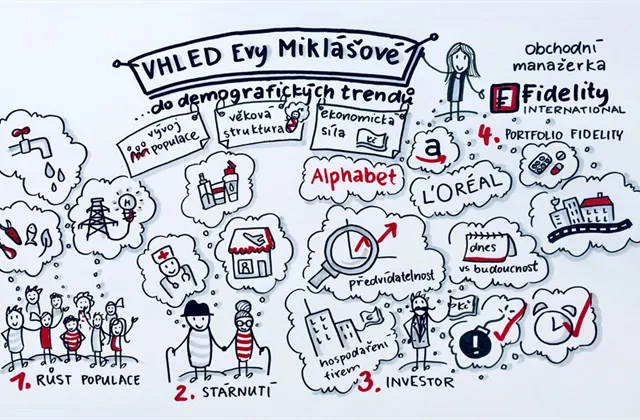 VHLED EVY MIKLÁŠOVÉ
...do demografických trendů
vývoj
populace
věková
struktura
ekonomická
síla
Kč
Obchodní
manažerka
Fidelity
INTERNATIONAL
4. PORTFOLIO FIDELITY
a
Alphabet
L'ORÉAL
R
předvídatelnost
dnes
vs budoucnost
Kč
hospodaření
firem
Kč
1. RŮST POPULACE
2. STÁRNUTÍ
3. INVESTOR